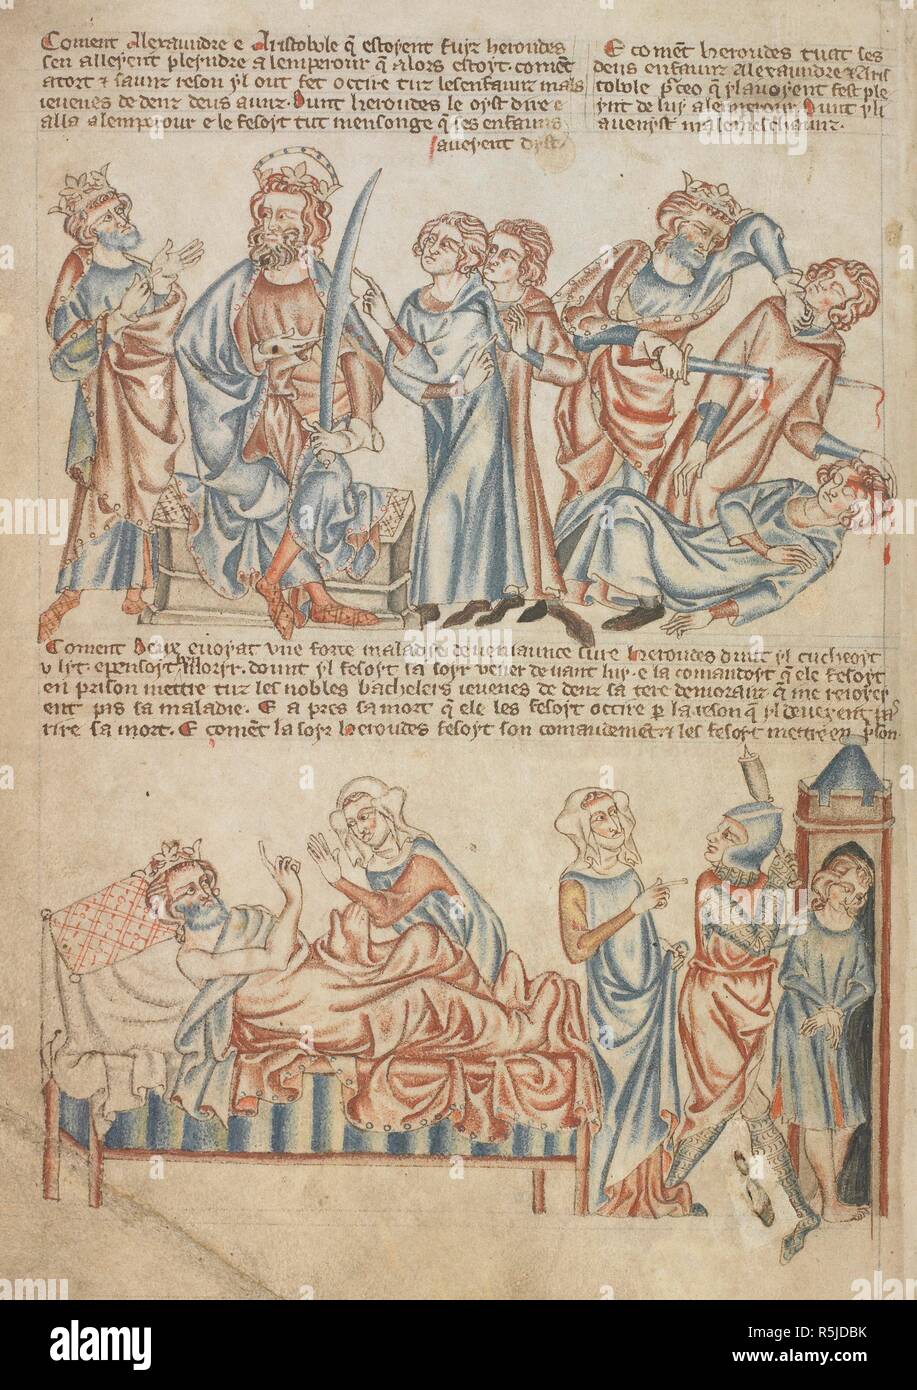 Coment Alexaundre e Aristoble q̃ estoyent fuiz heroudes
seu alleyent pleindre a lemperour q̃ alors estoyt. coment
a tort & saunz reson yl out fet occire tuz les enfaunz mals
ieuenes de denz deus aunz. Dunt heroudes le oyst dire e
alla a lemperour e le fesoyt tut mensonge q̃ ses enfauns
aueyent dyst.
E coment heroudes tuat ses
deus enfaunz Alexaundre & Aris
tolule pͬceo q̃ yl auoyent fest ple
ynt de luy a lemperour. Dunt yl i
auenyst malemeschaunz.
Coment Deux enuoyat vne forte maladye de veniaunce sure Heroudes dunt yl cucheoyt
v lyt. e pensoyt Moryr. dount yl fesoyt sa soyr vener deuant luy. e la comandoyt q̃ ele fesoyt
en prison mettre tuz les nobles bachelers ieuenes de denz sa tere demoranz q̃ ne reioyer
ent pas sa maladie. E a pres sa mort q̃ ele les fesoyt occire p̱ la reson q̃ yl deueyent pas
rire sa mort. E coment la soyr Heroudes fesoyt son comaundement & les fesoyt mettre en p̱son.
alamy
alamy
Image ID: R5JDBK
www.alamy.com